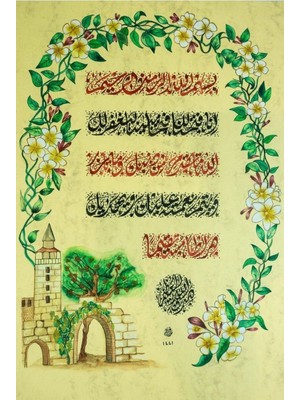 بسم الله الرحمن الرحيم
إنا فتحنا لك فتحا مبينا ليغفر لك
الله ما تقدم من ذنبك وما تأخر
ويتم نعمته عليك ويهديك
صراطا مستقيما
١٤٤١